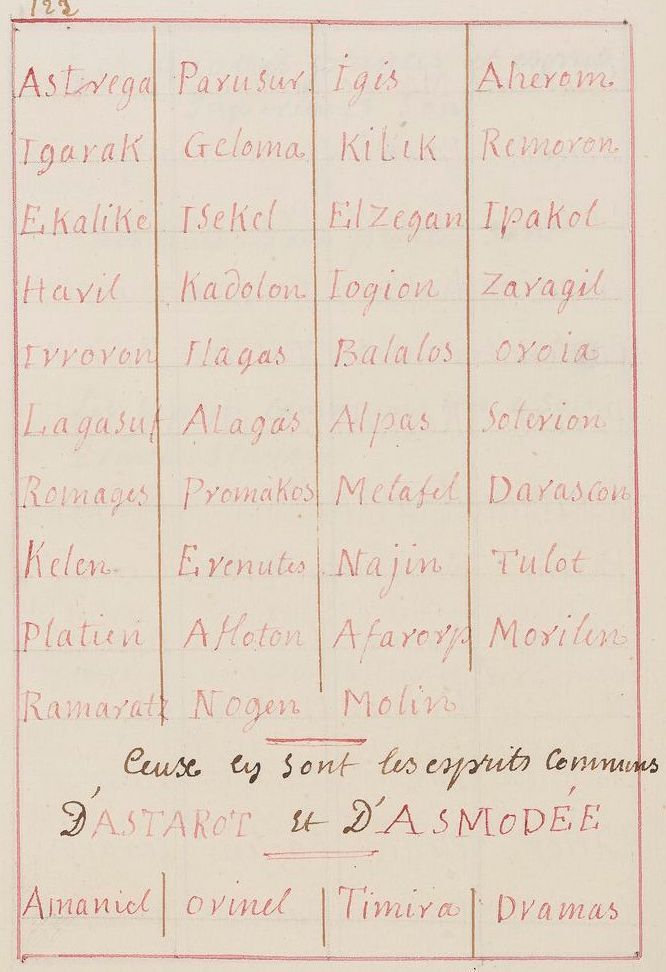 122
Astrega Parusur Igis Aherom
Igarak Geloma Kilik Remoron
Ekalike Isekel Elzegan Ipakol
Havil Kadolon Iogion Zaragil
Irroron Ilagas Balalos oroia
Lagasuf Alagas Alpas Soterion
Romages Promakos Metafel Darascon
Kelen Erenutes Najin Tulot
Platien Afloton Afarorp Morilen
Ramaratz Nogen Molin
Ceuse cy sont les esprits Communs
D'ASTAROT et D'ASMODÉE
Amaniel orinel Timira Dramas